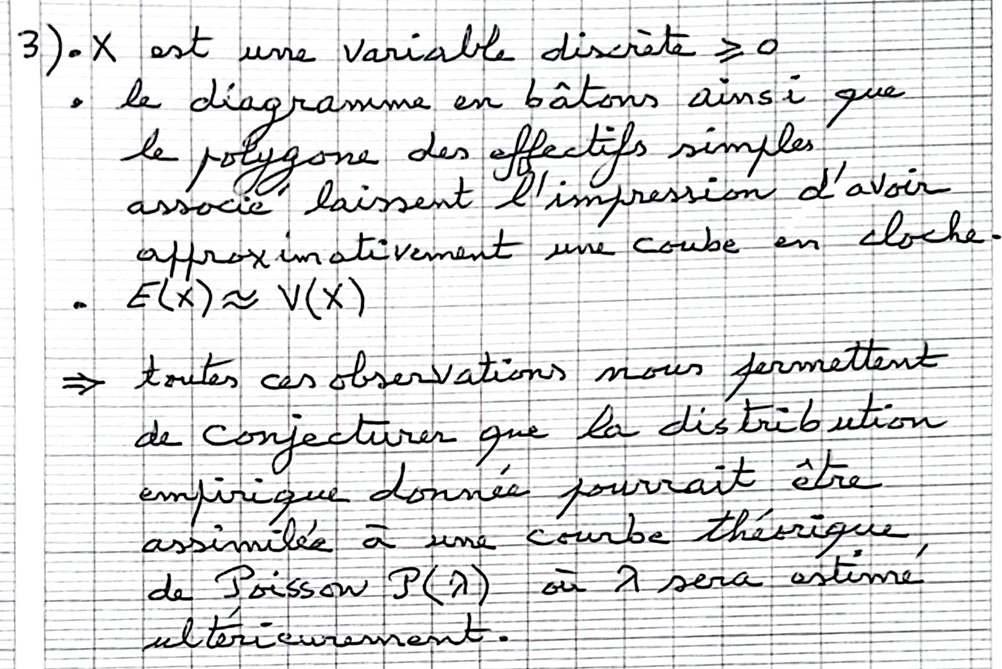 3). • X est une variable discrète ⩾ 0
• le diagramme en bâtons ainsi que
le polygone des effectifs simples
associé laissent l'impression d'avoir
approximativement une coube en cloche.
• E(X) ≈ V(X)
⇒ toutes ces observations nous permettent
de conjecturer que la distribution
empirique donnée pourrait être
assimilée à une courbe théorique
de Poisson P(λ) où λ sera estimé
ultérieurement.